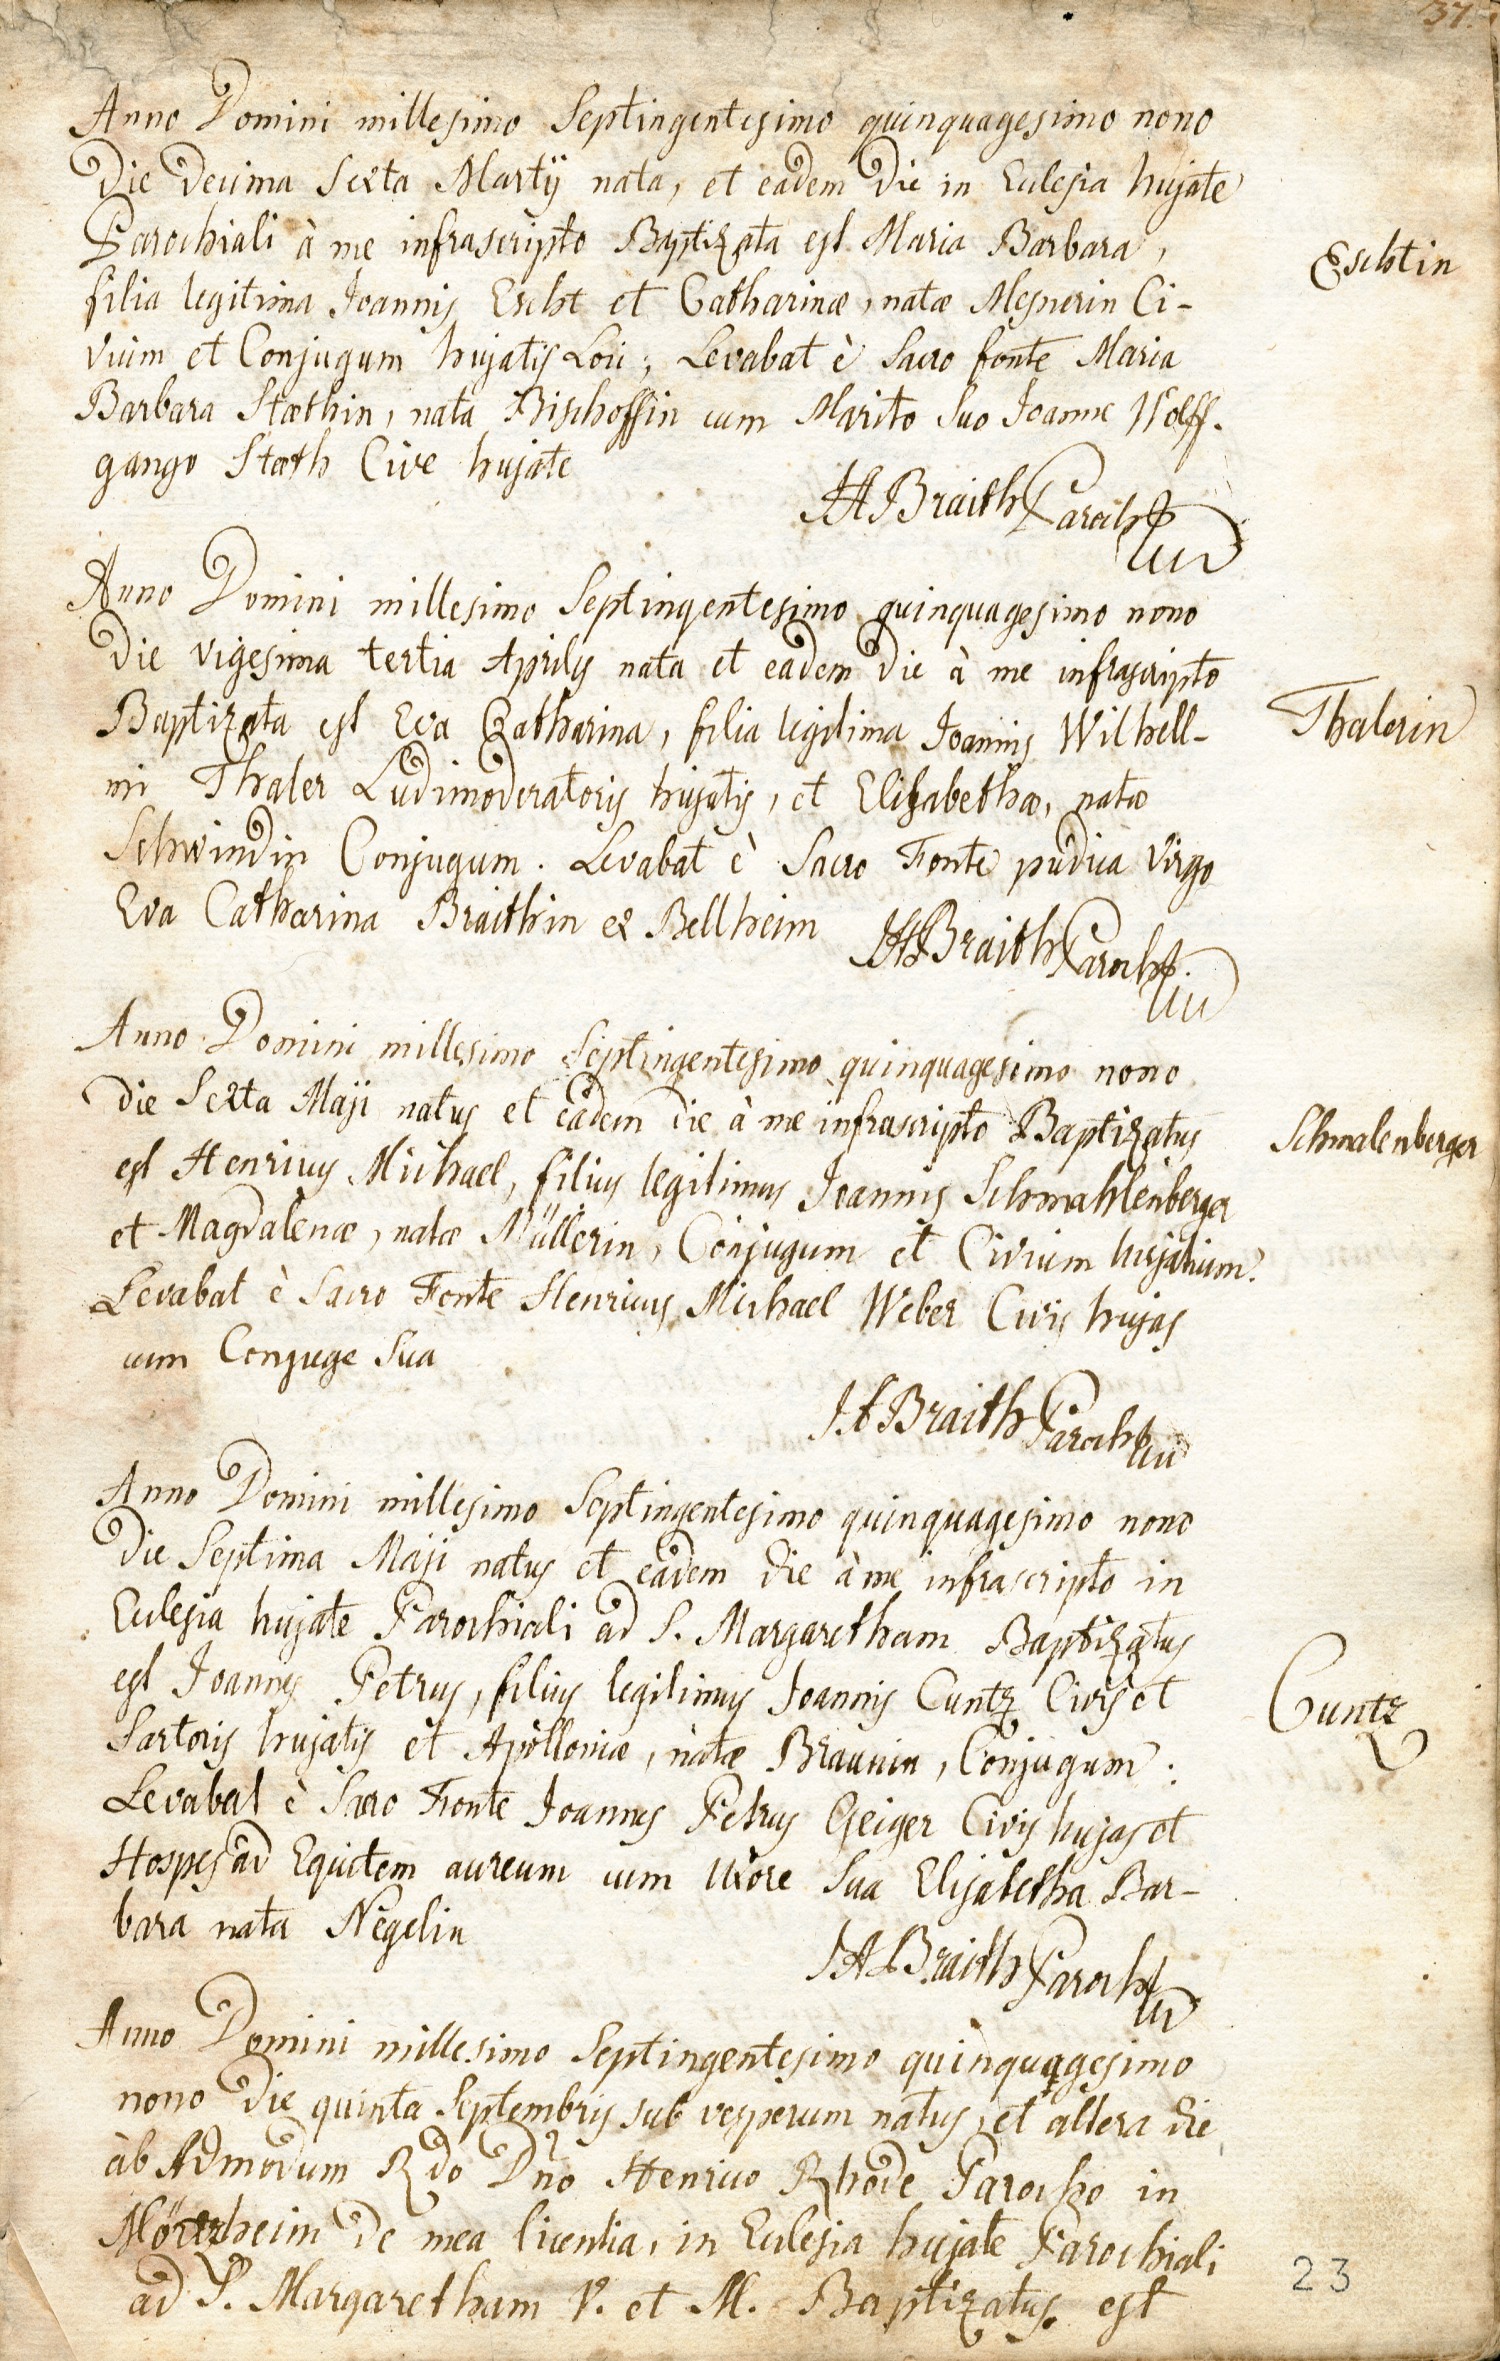 37.
Anno Domini millesimo Septingentesimo quinquagesimo nono
Die Decima Sexta Martij nata, et eadem Die in Eclesia hujate
Parochiali à me infrascripto Baptizata est Maria Barbara,
Eschtin
filia legitima Joannis Escht et Catharinæ, natæ Mesnerin Ci-
vium et Conjugum hujatis Loci; Levabat è Sacro fonte Maria
Barbara Stæthin, nata Bischoffin cum Marito Suo Joanne Wolff-
gango Stæth Cive hujate
HABraith Paroch9
Anno Domini millesimo Septingentesimo quinquagesimo nono
Die vigesima tertia Aprilis nata et eadem Die à me infrascripto
Baptizata est Eva Catharina, filia legitima Joannis Wilhell-
Thalerin
mi Thaler Ludimoderatoris hujatis, et Elisabethæ, natæ
Schwindin Conjugum. Levabat è Sacro Fonte pudica Virgo
Eva Catharina Braithin ex Bellheim
HABraith Paroch9.
Anno Domini millesimo Septingentesimo quinquagesimo nono
Die Sexta Maji natus et eadem die à me infrascripto Baptizatus
Schmalenberger
est Henricus Michael, filius legitimus Joannis Schmahlenberger
et Magdalenæ, natæ Müllerin, Conjugum et Civium hujatium.
Levabat è Sacro Fonte Henricus Michael Weber Civis hujas
cum Conjuge Sua
HABraith Paroch9
Anno Domini millesimo Septingentesimo quinquagesimo nono
Die Septima Maji natus et eadem die à me infrascripto in
Eclesia hujate Parochiali ad S. Margaretham Baptizatus
est Joannes Petrus, filius legitimus Joannis Cuntz Civis et
Cuntz
Sartoris hujatis et Apolloniæ, natæ Braunin, Conjugum.
Levabat è Sacro Fonte Joannes Petrus Geiger Civis hujas et
Hospes ad Equitem aureum cum Uxore Sua Elisabetha Bar-
bara nata Negelin
HABraith Paroch9
Anno Domini millesimo Septingentesimo quinquagesimo
nono Die quinta Septembris sub vesperum natus, et altera die
ab Admodum Rdo Dno Henrico Rhode Parocho in
Mörzheim de mea licentia, in Eclesia hujate Parochiali
ad S. Margaretham V. et M. Baptizatus est
23